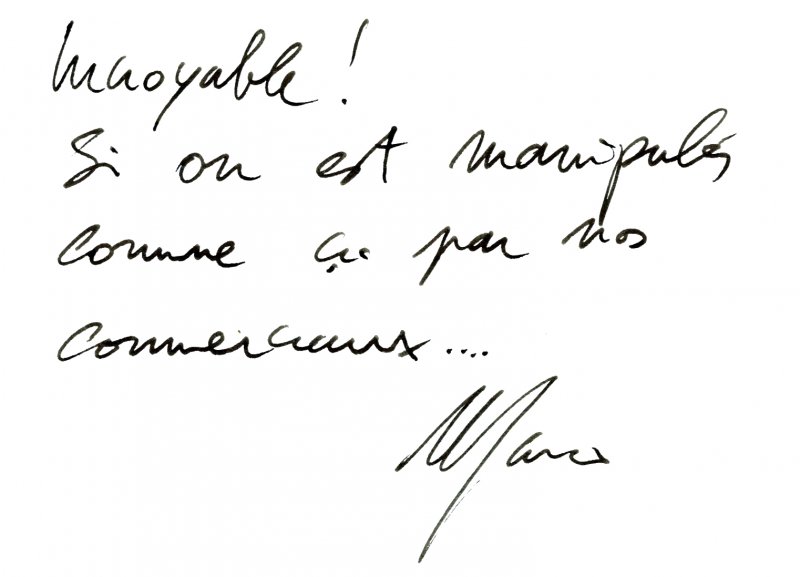 Incroyable !
Si on est manipulés
comme ça par nos
commerciaux....
Marc